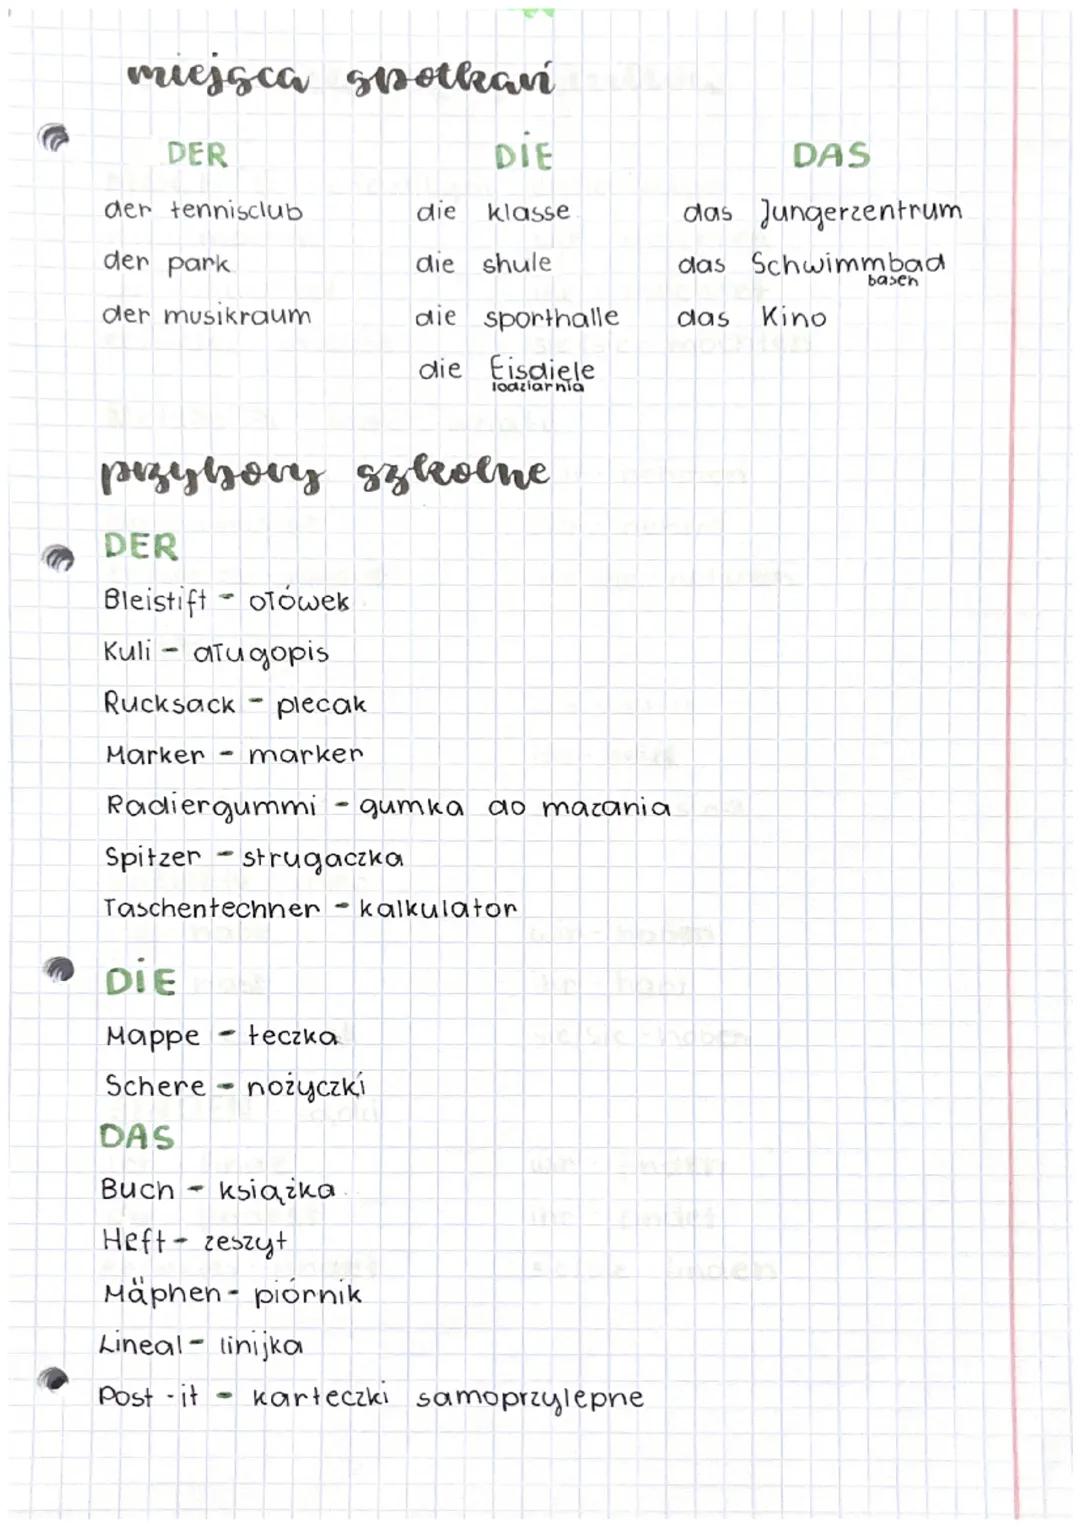 miejsca spotkań
DER DIE DAS
der tennisclub die klasse das Jungerzentrum
der park die shule das Schwimmbad
basen
der musikraum die sporthalle das Kino
die Eisdiele
lodziarnia
przybory szkolne
DER
Bleistift - ołówek
Kuli - długopis
Rucksack - plecak
Marker - marker
Radiergummi - gumka do mazania
Spitzer - strugaczka
Taschentechner - kalkulator
DIE
Mappe - teczka
Schere - nożyczki
DAS
Buch - książka
Heft - zeszyt
Mäphen - piórnik
Lineal - linijka
Post-it - karteczki samoprzylepne